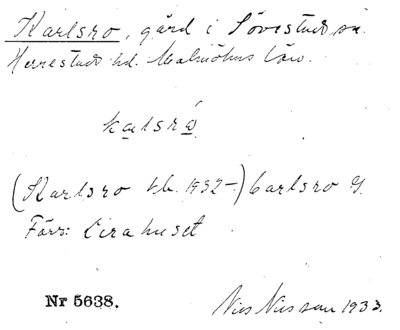 Karlsro, gård i Sövestads sn.
Herrestads hd. Malmöhus län.
kalsró
(Karlsro tb. 1932–) Carlsro G.
Förr: Cirahuset
Nr 5638.
Nils Nilsson 1933.